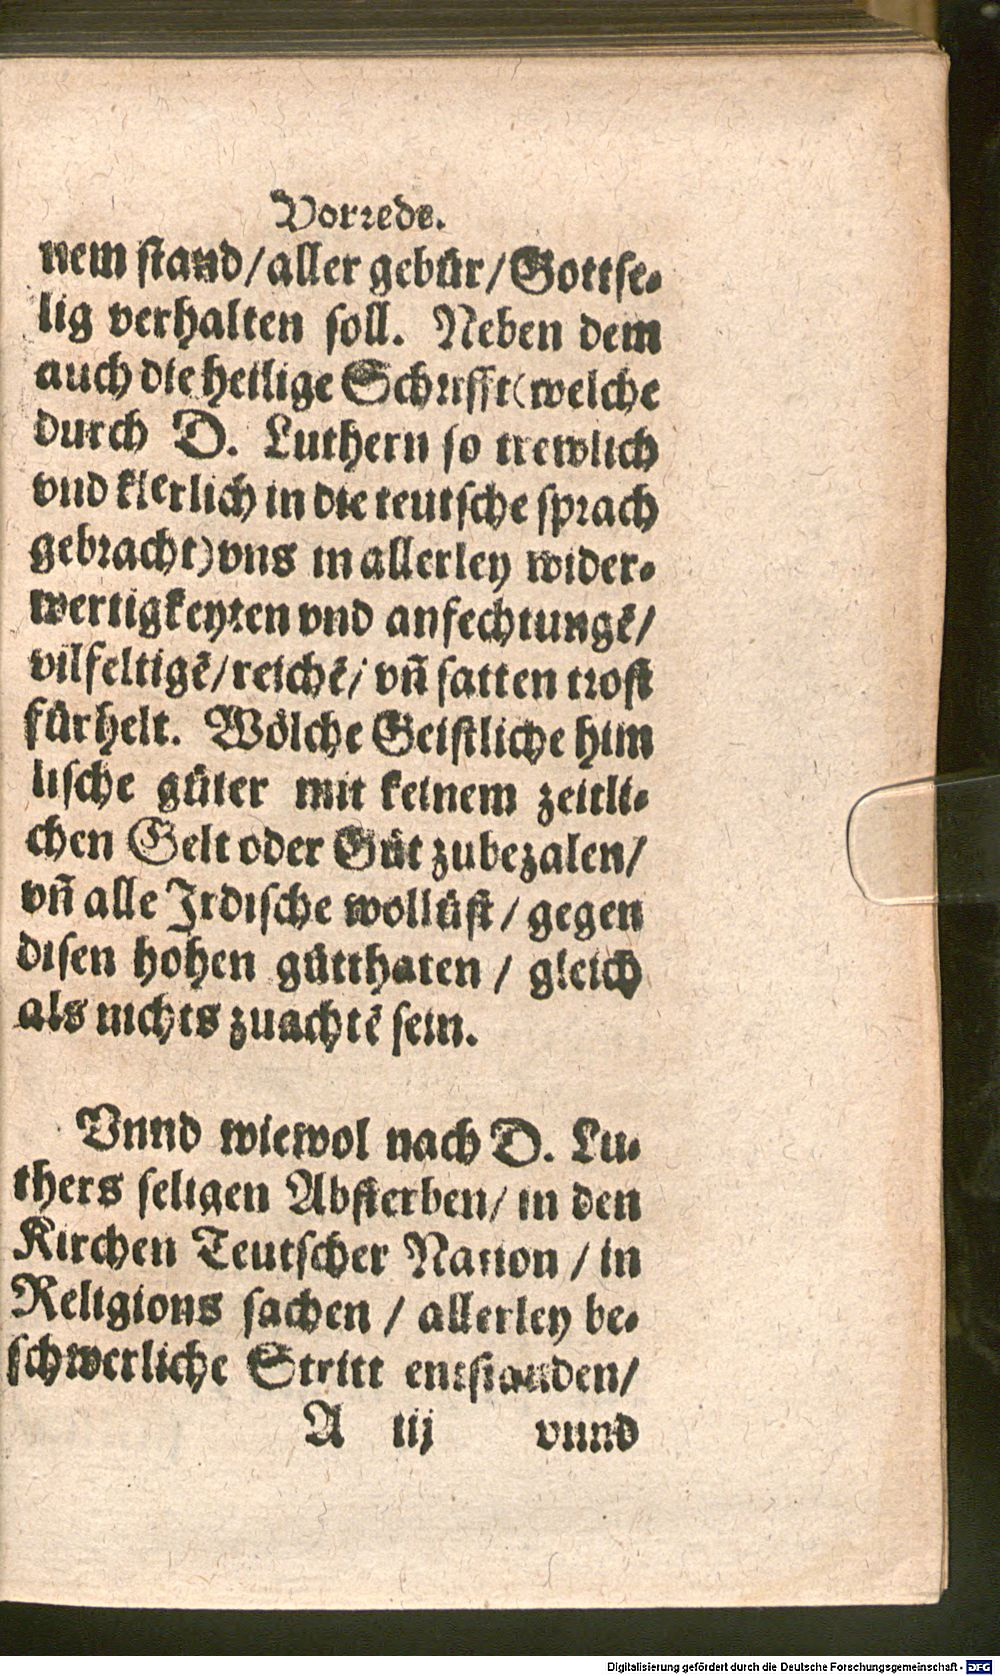 Vorrede.
nem stand/aller gebür/Gottse-
lig verhalten soll. Neben dem
auch die heilige Schrifft(welche
durch D. Luthern so trewlich
vnd klerlich in die teutsche sprach
gebracht)vns in allerley wider-
wertigkeyten vnd anfechtungẽ/
vilfeltigẽ/reichẽ/vñ satten trost
fürhelt. Wölche Geistliche him
lische güter mit keinem zeitli-
chen Gelt oder Gůt zubezalen/
vñ alle Jrdische wollüst/gegen
disen hohen gůtthaten/gleich
als nichts zuachtẽ sein.
Vnnd wiewol nach D. Lu-
thers seligen Absterben/in den
Kirchen Teutscher Nation/in
Religions sachen/allerley be-
schwerliche Stritt entstanden/
A iij vnnd
Digitalisierung gefördert durch die Deutsche Forschungsgemeinschaft - DFG